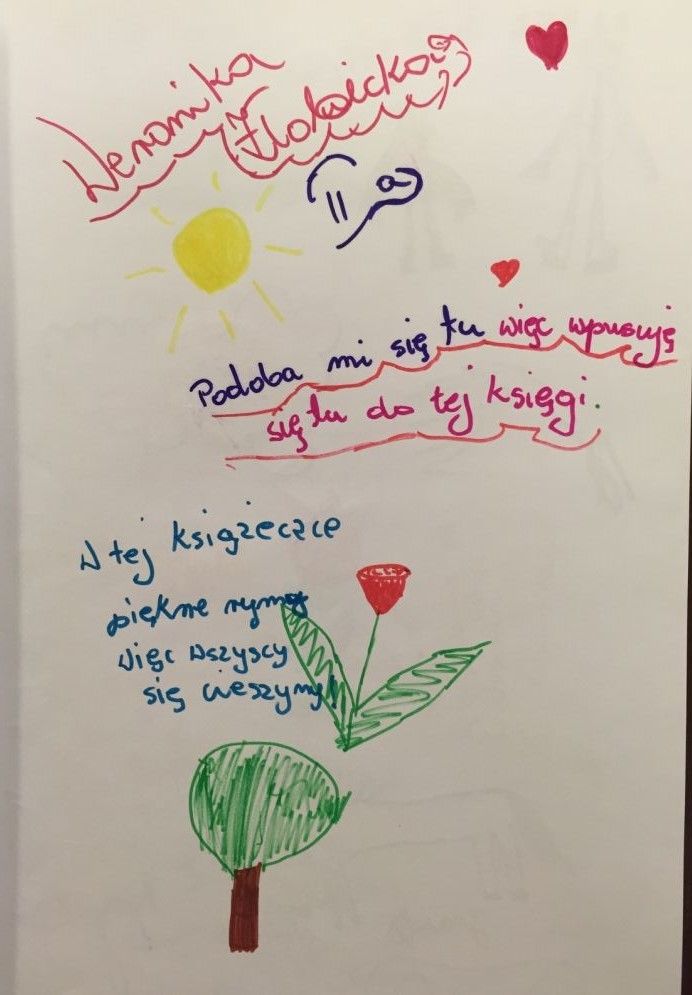 Weronika
Podoba mi się tu więc wpusuję
się tu do tej księgi.
W tej książeczce
piękne rymy
więc wszyscy
się cieszymy!